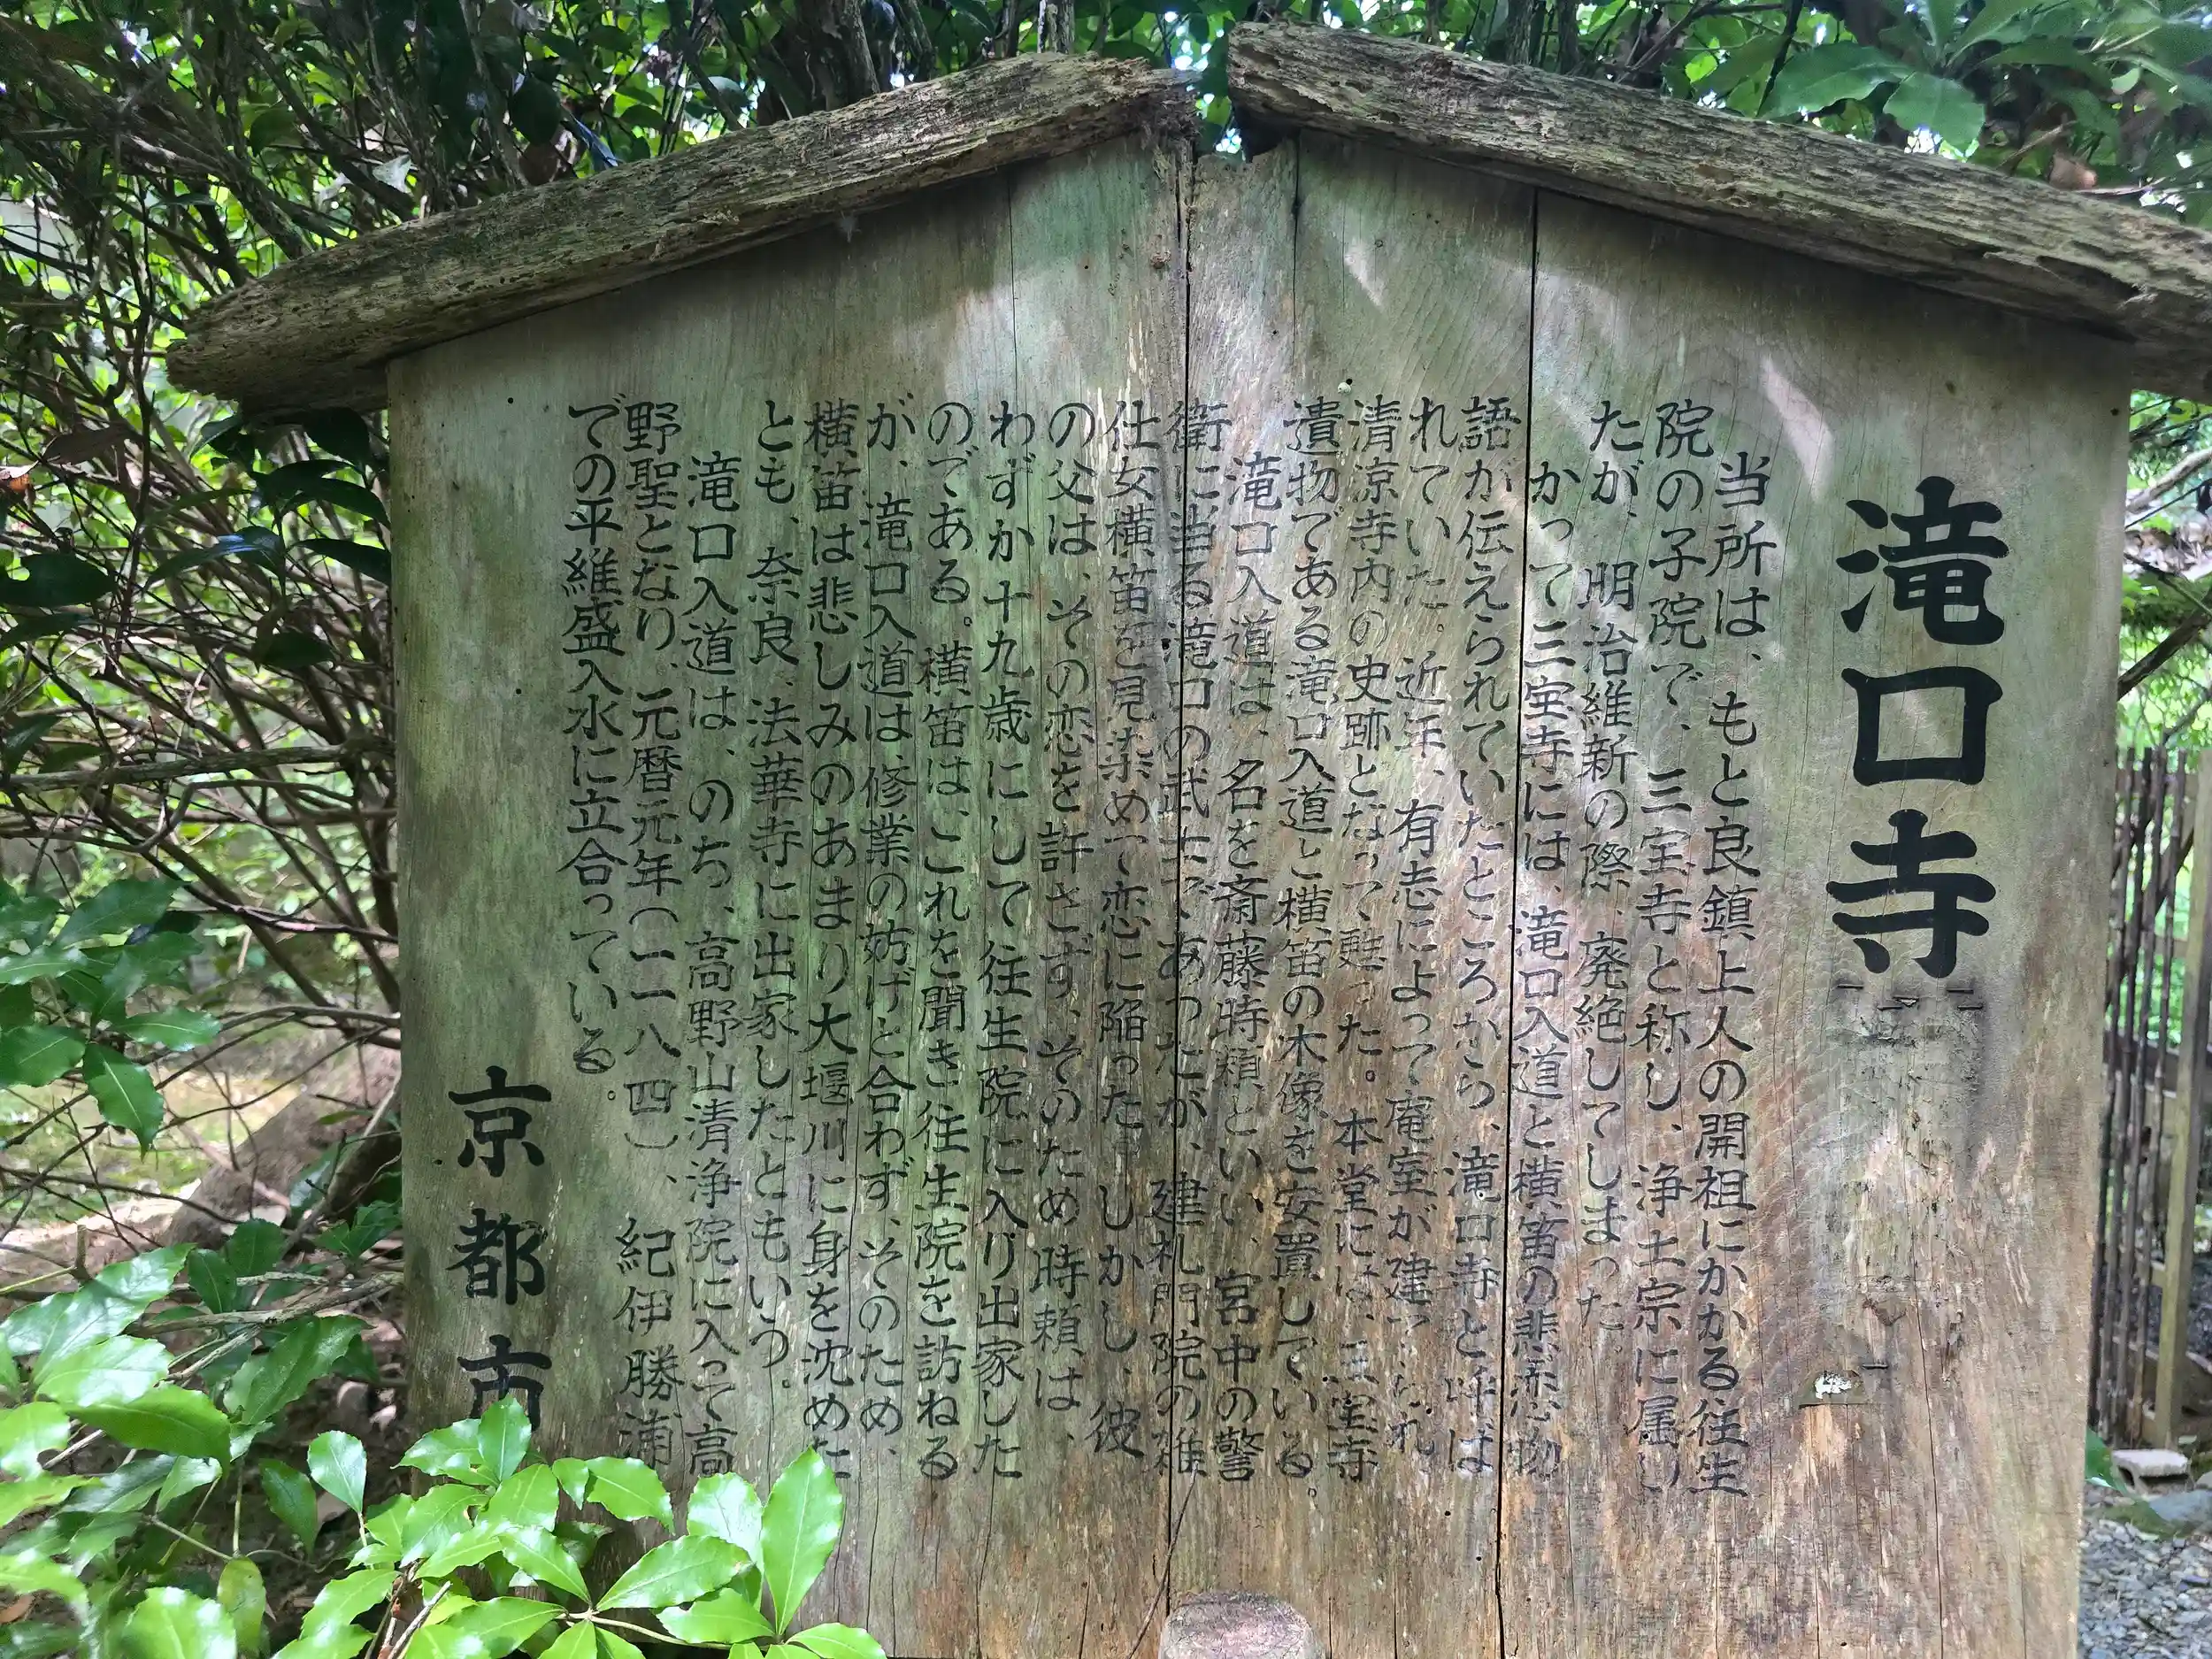 滝口寺
当所は、もと良鎮上人の開祖にかかる往生
院の子院で、三宝寺と称し、浄土宗に属し
たが、明治維新の際、廃絶してしまった。
かって三宝寺には、滝口入道と横笛の悲恋物
語が伝えられていたところから、滝口寺と呼ば
れていた。近年、有志によって庵室が建てられ
清凉寺内の史跡となって甦った。本堂には、三宝寺
遺物である滝口入道と横笛の木像を安置している。
滝口入道は、名を斎藤時頼といい、宮中の警
衛に当る滝口の武士であったが、建礼門院の雑
仕女横笛を見染めて恋に陥った。しかし、彼
の父は、その恋を許さず、そのため時頼は、
わずか十九歳にして往生院に入り出家した
のである。横笛は、これを聞き往生院を訪ねる
が、滝口入道は修業の妨げと合わず、そのため、
横笛は悲しみのあまり大堰川に身を沈めた
とも、奈良、法華寺に出家したともいう。
滝口入道は、のち、高野山清浄院に入って高
野聖となり、元暦元年(一一八四)、紀伊勝浦
での平維盛入水に立合っている。
京都市